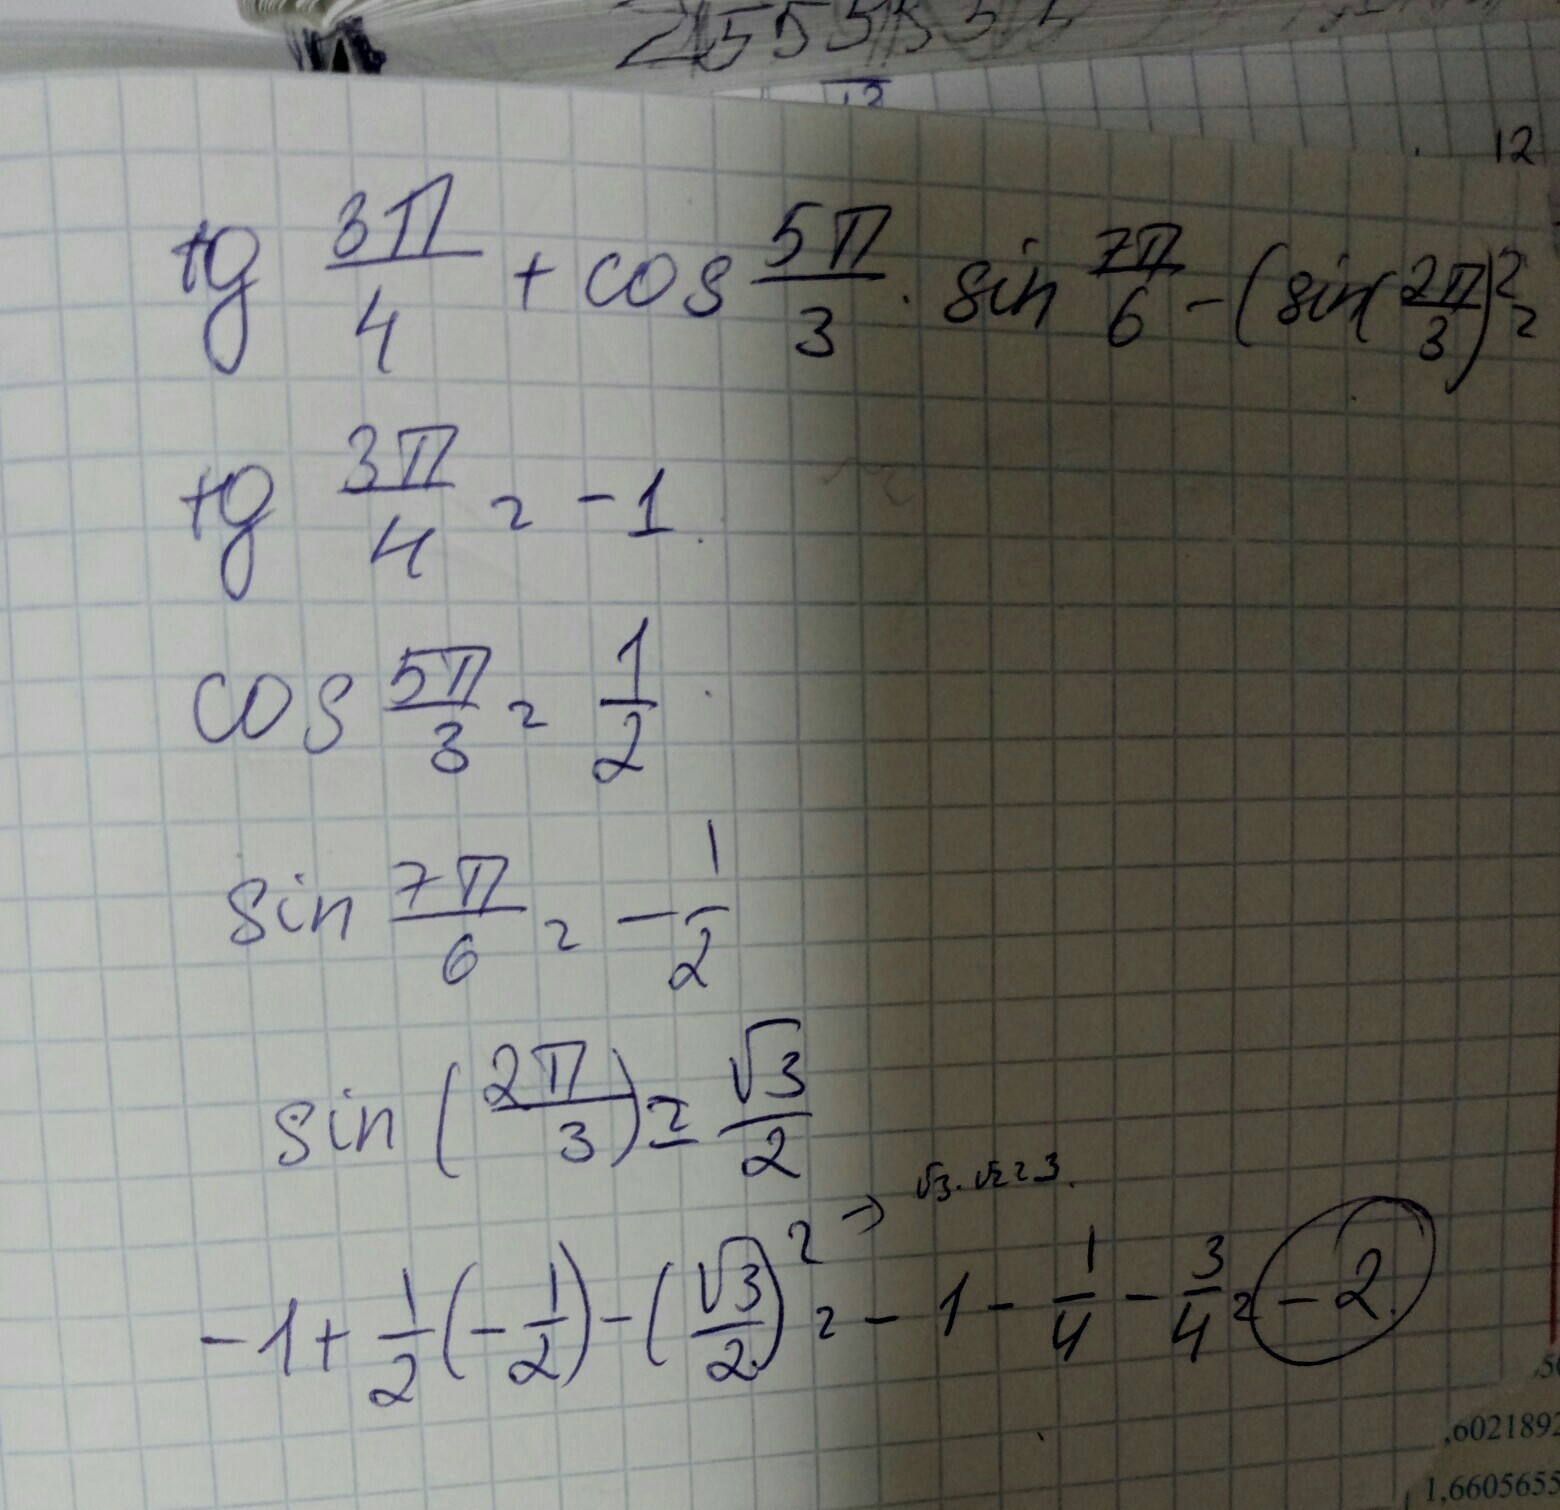 2155 5 15 5 5
12
12
tg 3π/4 + cos 5π/3 · sin 7π/6 - (sin(2π/3)² =
tg 3π/4 = -1
cos 5π/3 = 1/2
sin 7π/6 = -1/2
sin (2π/3) = √3/2
→ √3·√2=3.
-1+1/2(-1/2)-(√3/2)² = -1-1/4-3/4=-2.
,6021892
1,6605655